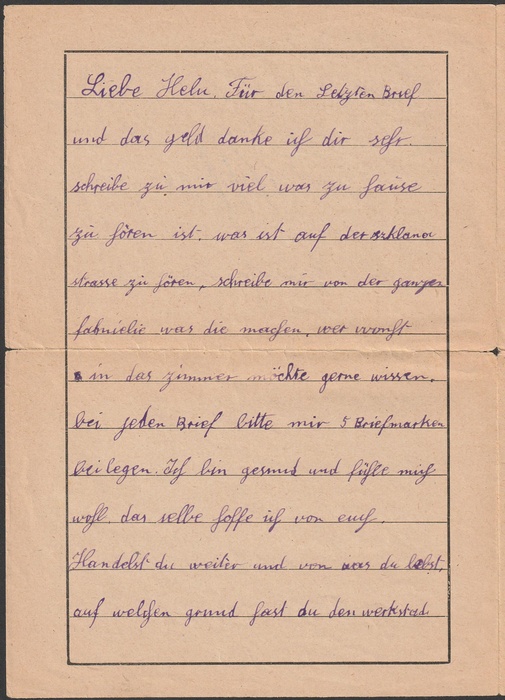 Liebe Helu. Für den Letzten Brief
und das geld danke ich dir sehr.
schreibe zu mir viel was zu hause
zu hören ist. was ist auf der szklana
strasse zu hören, schreibe mir von der ganzen
fahmielie was die machen, wer wonht
in das zimmer möchte gerne wissen.
bei jeden Brief bitte mir 5 Briefmarken
beilegen. Ich bin gesund und fühle mich
wohl, das selbe hoffe ich von euch.
Handelst du weiter und von was du lebst,
auf welchen grund hast du den werkstad